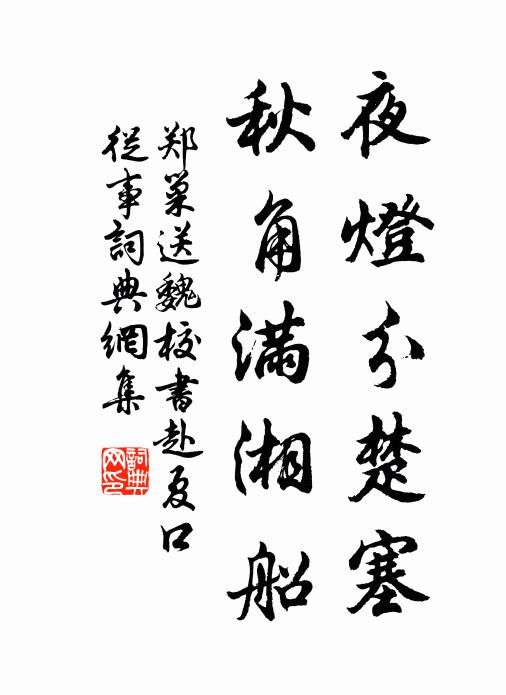 夜燈分楚塞
秋角滿湘船
郑巢送魏校書赴夏口
從事詞典網集
詞典网印